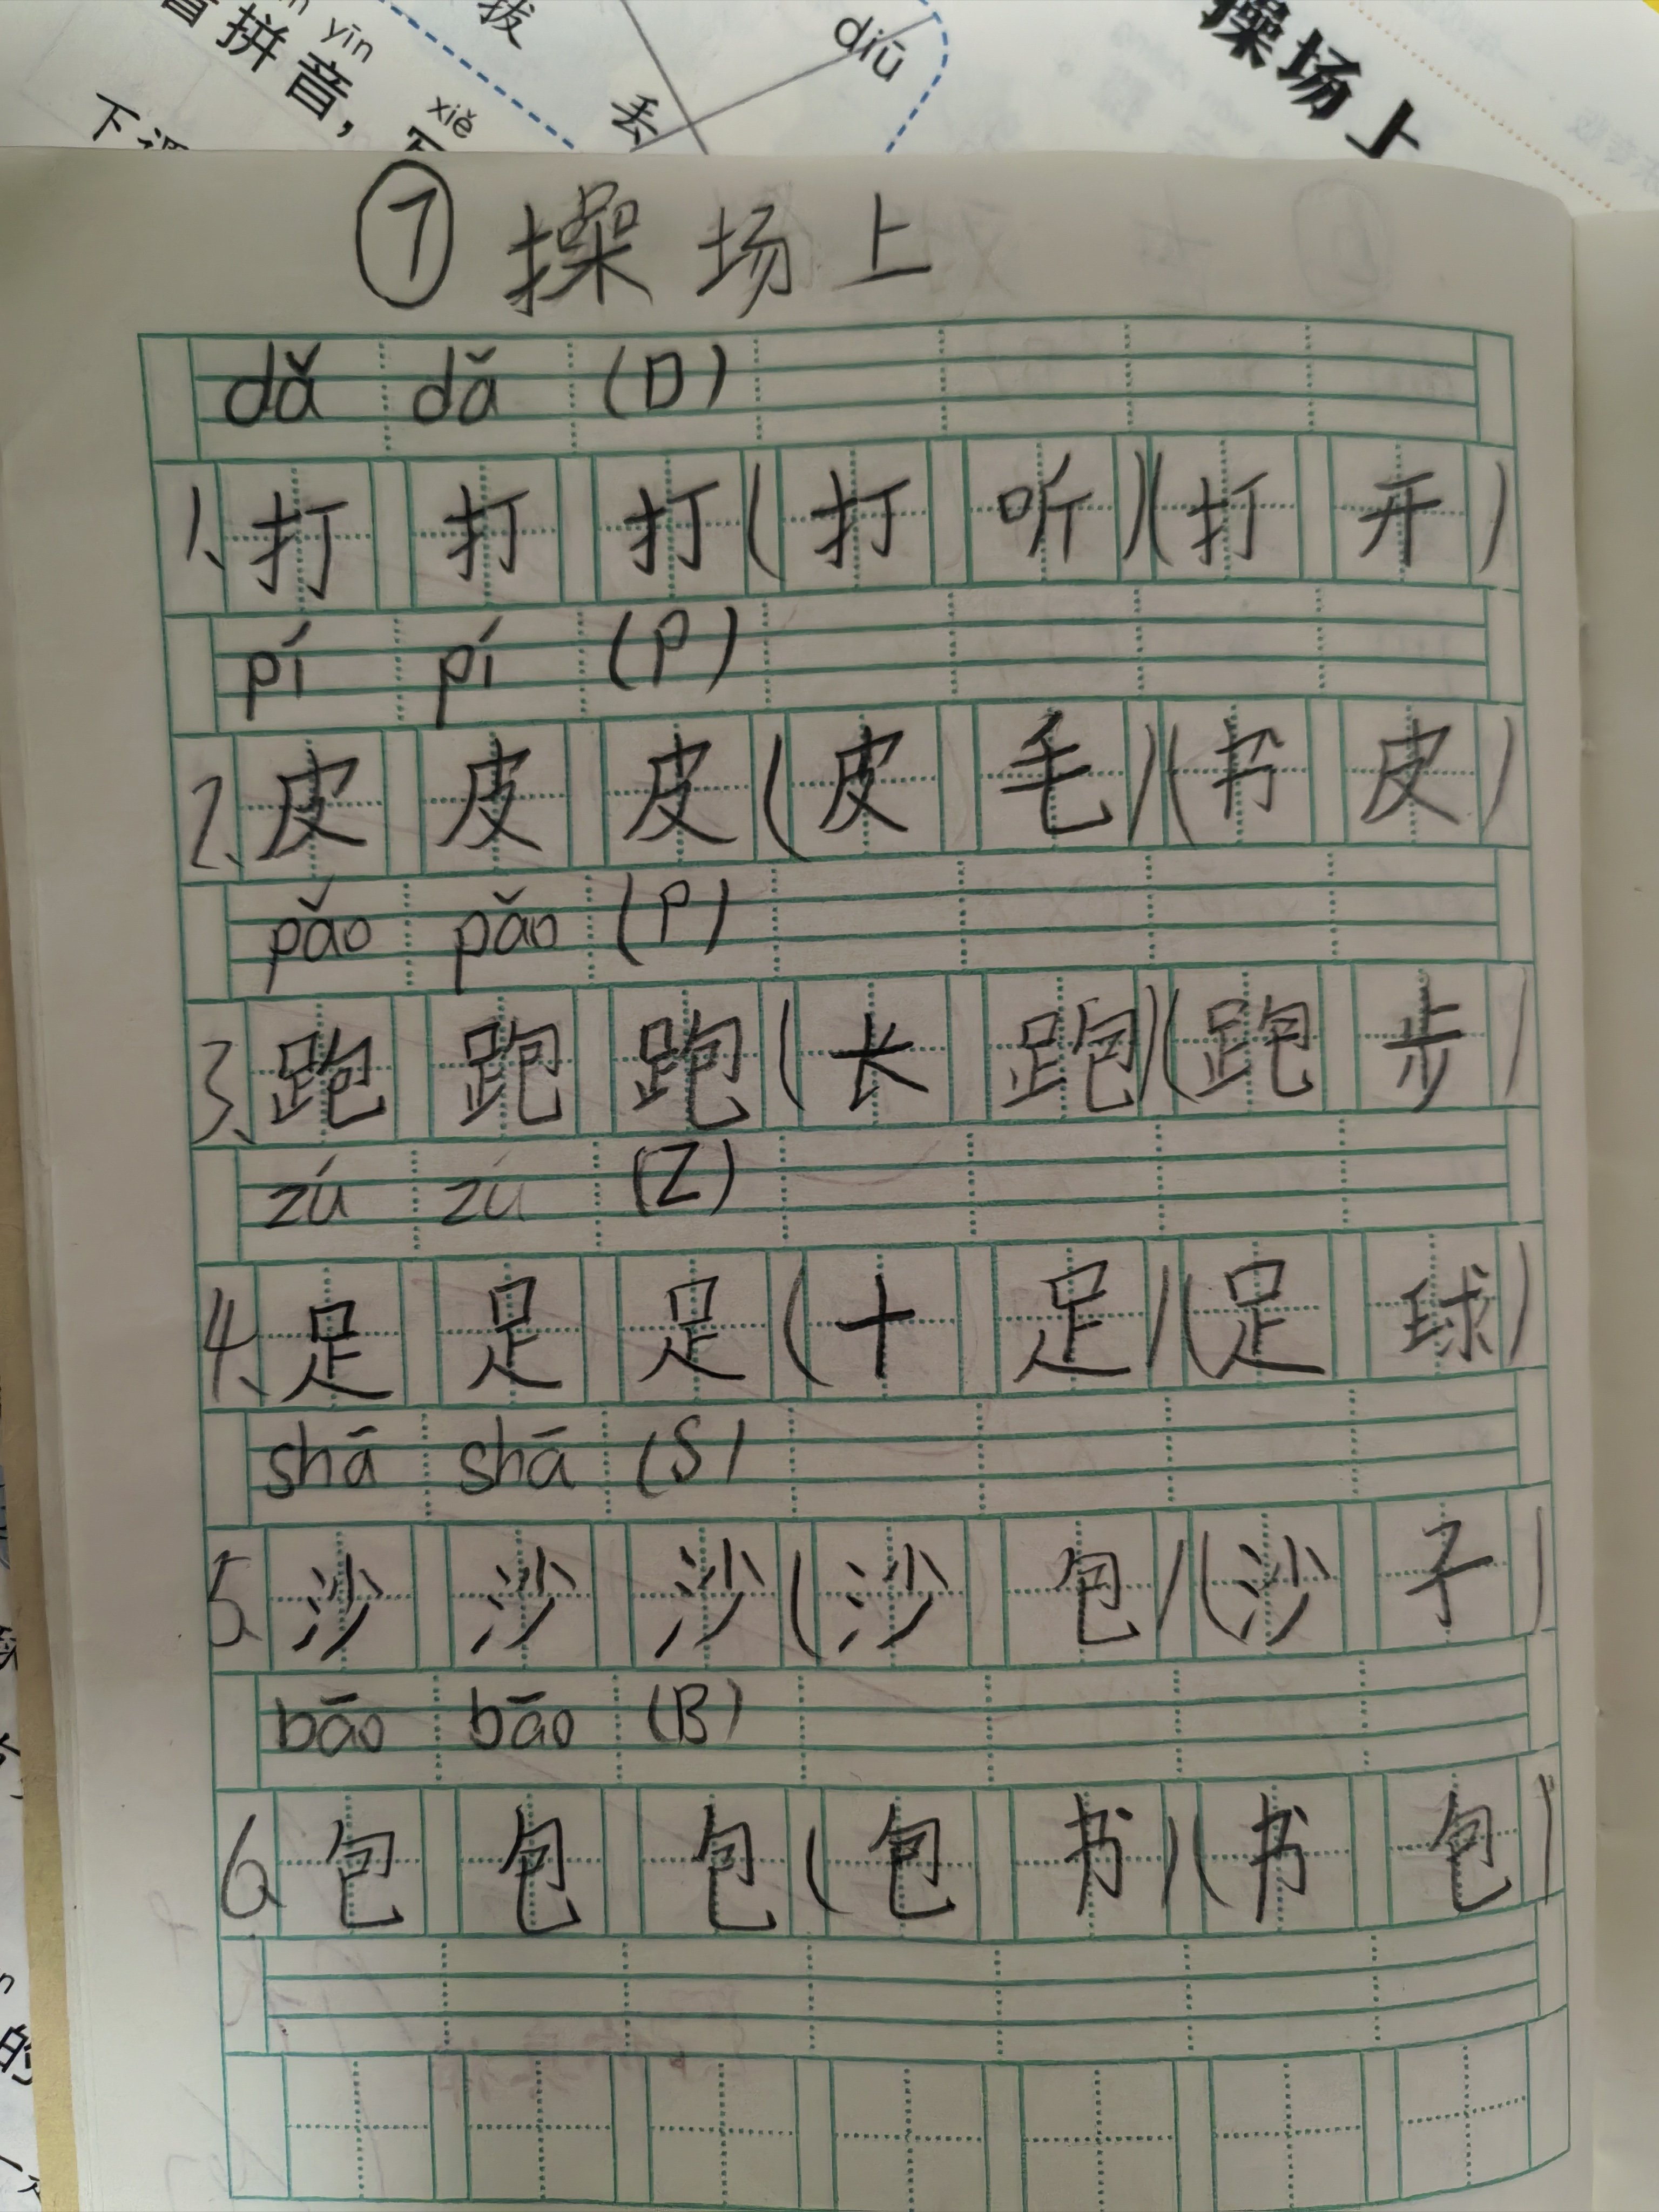 yīn
拼音，
xiě
拔
丢
diū
操场上
⑦ 操场上
dǎ dǎ (D)
1、打 打 打 (打听)(打开)
pí pí (P)
2、皮 皮 皮 (皮毛)(书皮)
pǎo pǎo (P)
3、跑 跑 跑 (长跑)(跑步)
zú zú (Z)
4、足 足 足 (十足)(足球)
shā shā (S)
5、沙 沙 沙 (沙包)(沙子)
bāo bāo (B)
6、包 包 包 (包书)(书包)
的